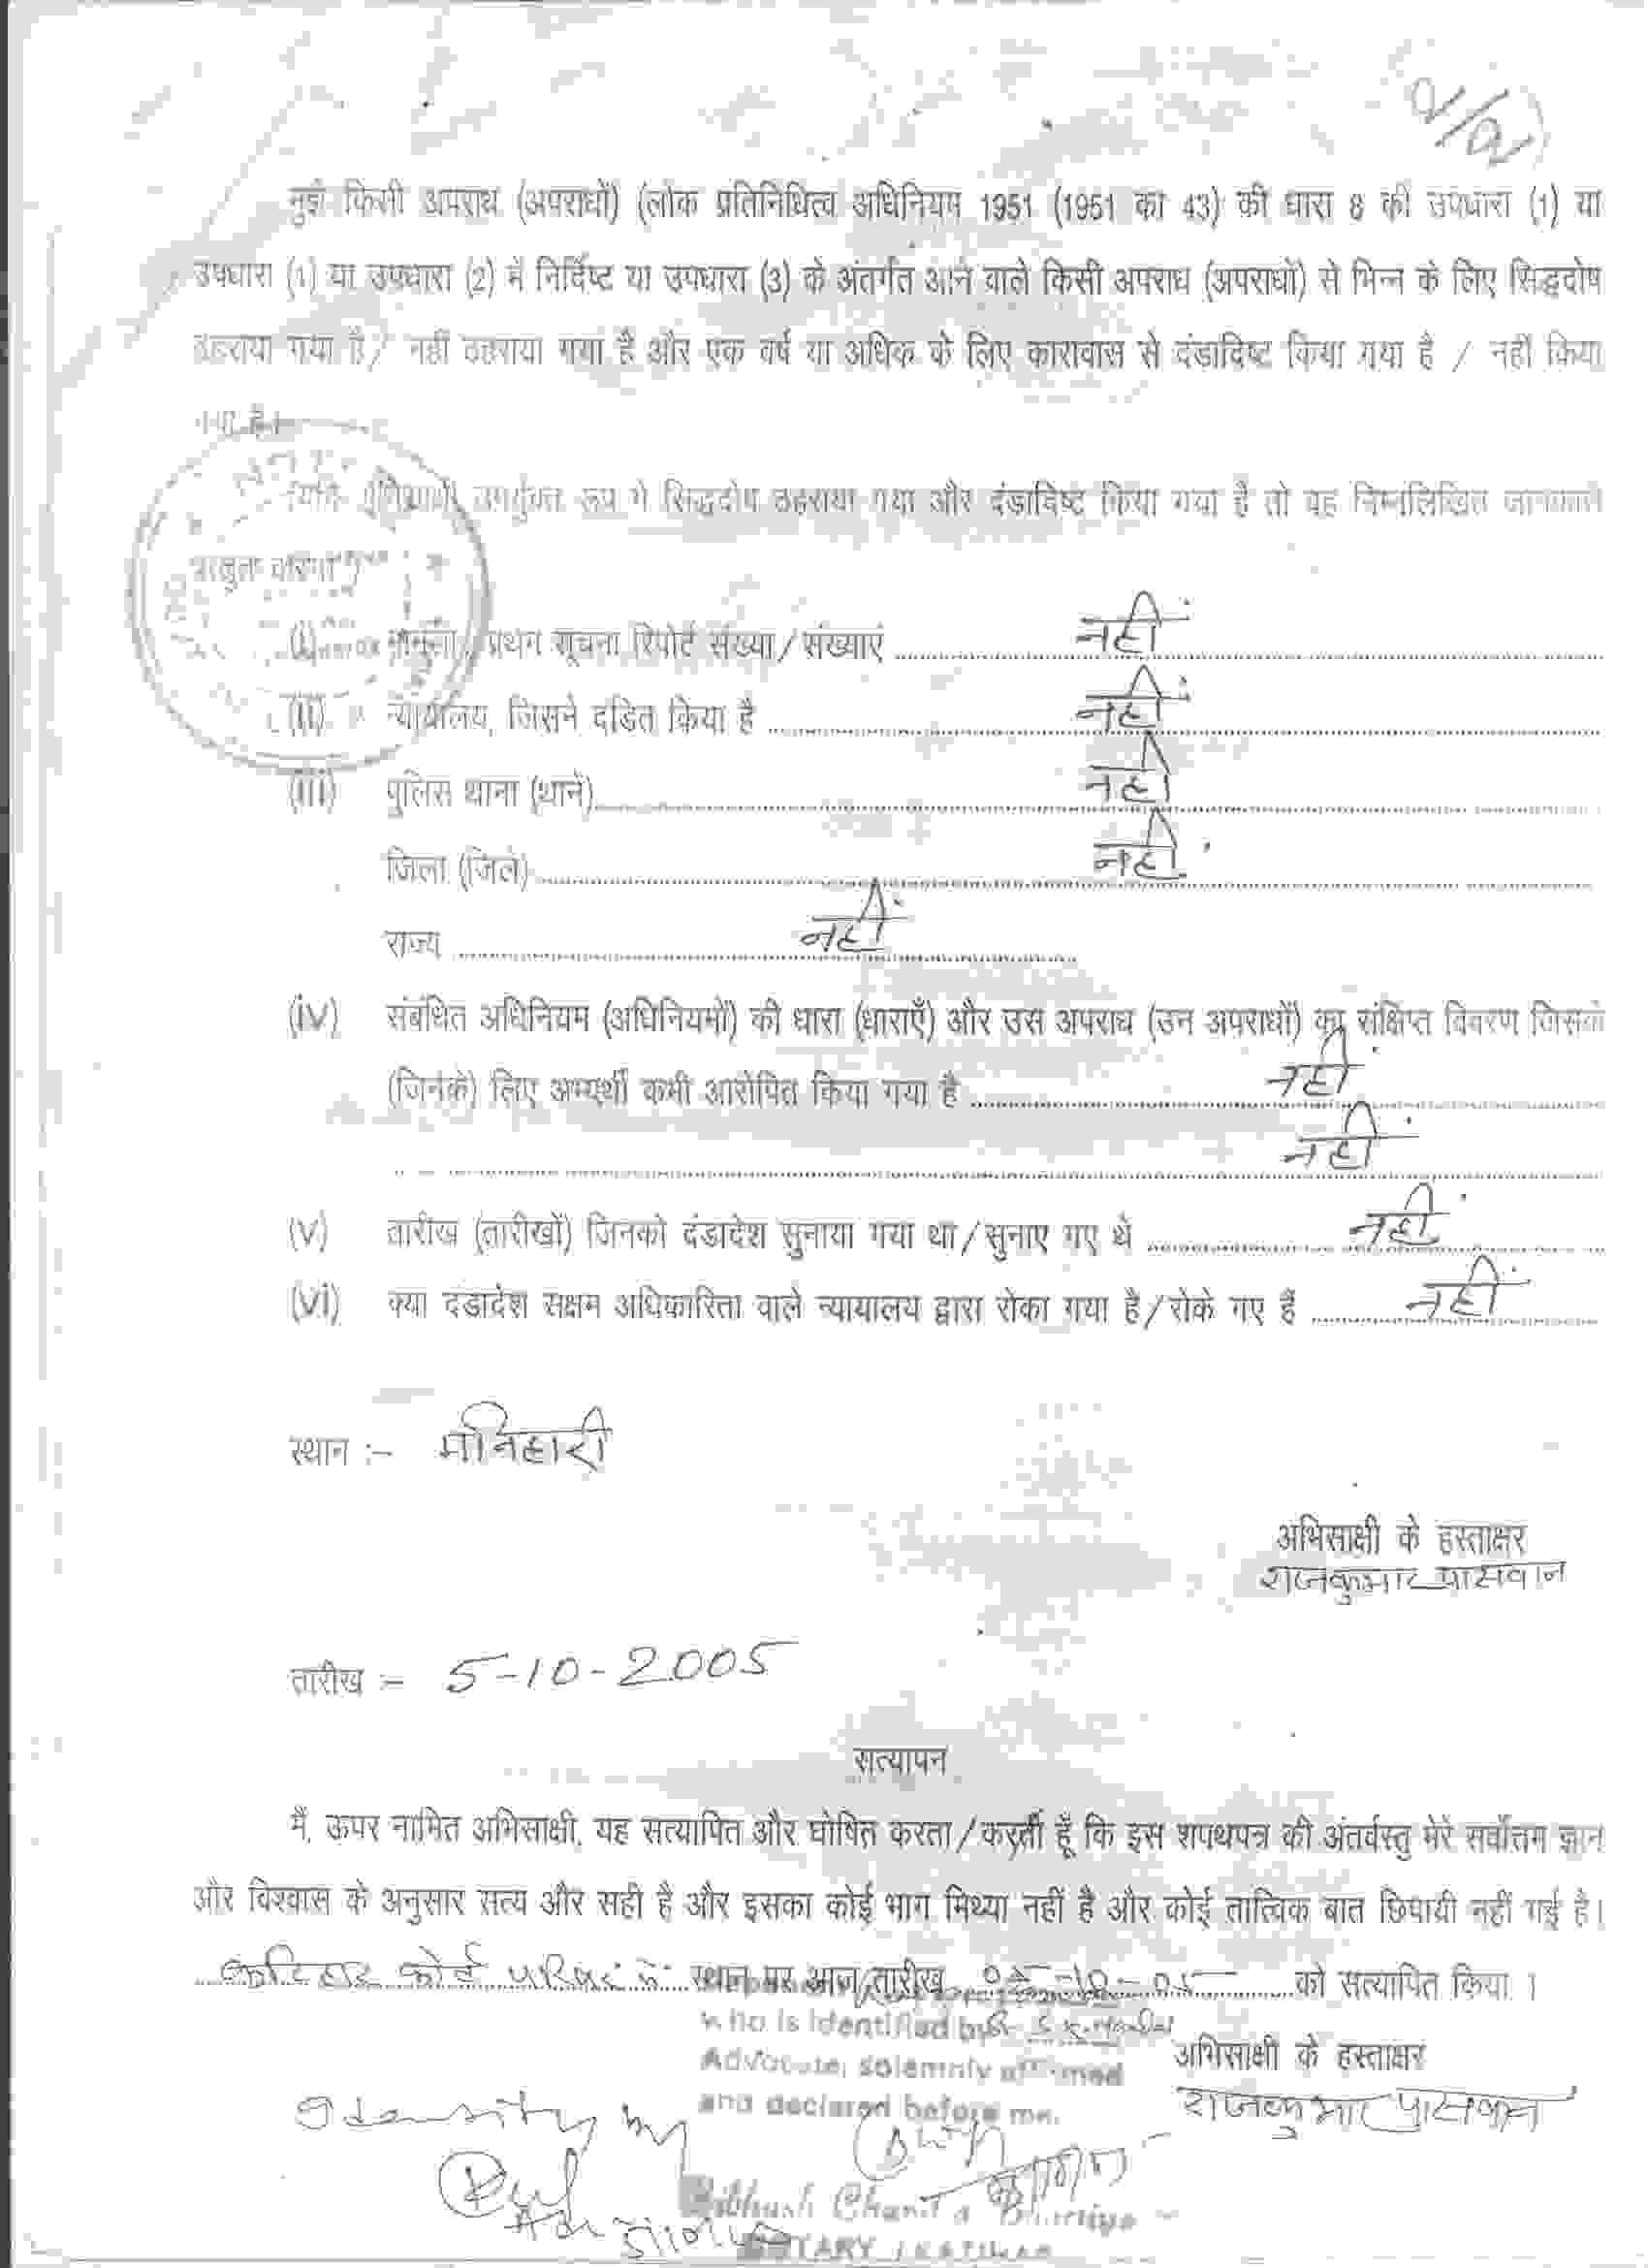 मुझे किसी अपराध (अपराधों) (लोक प्रतिनिधित्व अधिनियम 1951 (1951 का 43) की धारा 8 की उपधारा (1) या
उपधारा (1) या उपधारा (2) में निर्दिष्ट या उपधारा (3) के अंतर्गत आने वाले किसी अपराध (अपराधों) से भिन्न के लिए सिद्धदोष
ठहराया गया है / नहीं ठहराया गया है और एक वर्ष या अधिक के लिए कारावास से दंडादिष्ट किया गया है / नहीं किया
गया है।
उपर्युक्त रूप में सिद्धदोष ठहराया गया और दंडादिष्ट किया गया है तो वह निम्नलिखित जानकारी
(i) प्रथम सूचना रिपोर्ट संख्या/संख्याएं नहीं
(ii) न्यायालय, जिसने दंडित किया है नहीं
(iii) पुलिस थाना (थाने) नहीं
जिला (जिले) नहीं
राज्य नहीं
(iv) संबंधित अधिनियम (अधिनियमों) की धारा (धाराएँ) और उस अपराध (उन अपराधों) का संक्षिप्त विवरण जिसके
(जिनके) लिए अभ्यर्थी कभी आरोपित किया गया है नहीं
नहीं
(v) तारीख (तारीखों) जिनको दंडादेश सुनाया गया था/सुनाए गए थे नहीं
(vi) क्या दंडादेश सक्षम अधिकारिता वाले न्यायालय द्वारा रोका गया है/रोके गए हैं नहीं
स्थान :– मनिहारी
अभिसाक्षी के हस्ताक्षर
राजकुमार पासवान
तारीख :– 5-10-2005
सत्यापन
मैं, ऊपर नामित अभिसाक्षी, यह सत्यापित और घोषित करता/करती हूँ कि इस शपथपत्र की अंतर्वस्तु मेरे सर्वोत्तम ज्ञान
और विश्वास के अनुसार सत्य और सही है और इसका कोई भाग मिथ्या नहीं है और कोई तात्विक बात छिपायी नहीं गई है।
कटिहार कोर्ट स्थान पर आज तारीख 05-10-05 को सत्यापित किया ।
who is identified by
Advocate, solemnly affirmed
and declared before me.
अभिसाक्षी के हस्ताक्षर
राजकुमार पासवान
by
NOTARY